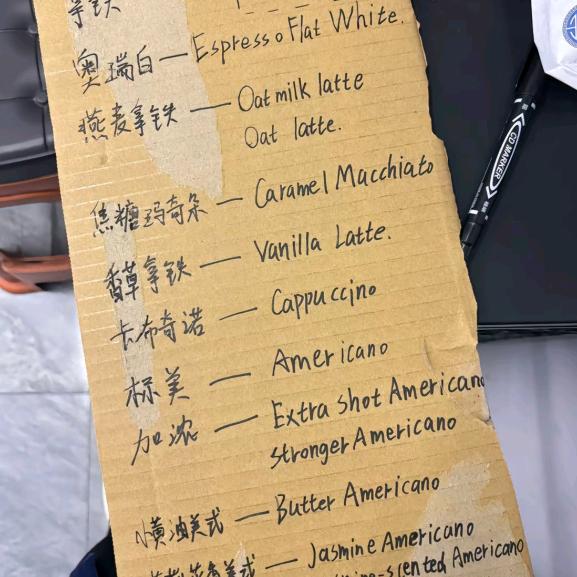 拿铁
奥瑞白 — Espresso Flat White.
燕麦拿铁 — Oat milk latte
Oat latte.
焦糖玛奇朵 — Caramel Macchiato
香草拿铁 — Vanilla Latte.
卡布奇诺 — Cappuccino
标美 — Americano
加浓 — Extra shot Americano
stronger Americano
黄油美式 — Butter Americano
美式 — Jasmine Americano
-scented Americano
CD MARKER